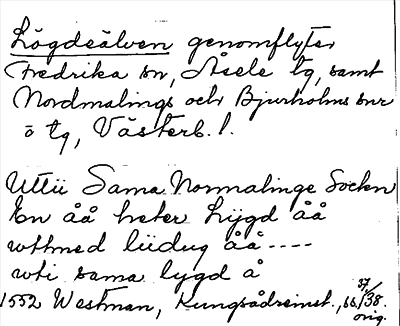 Lögdeälven genomflyter
Fredrika sn, Åsele tg, samt
Nordmalings och Bjurholms snr
ö tg, Västerb. l.
Uttii Sama Normalinge Socken
En åå heter Lijgd åå
wthmed liidug åå ----
wti sama lygd å
1552 Westman, Kungsådreinst., bb. 37/38.
orig.